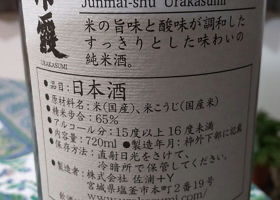 Junmai-shu Urakasumi
霞
URAKASUMI
米の旨味と酸味が調和した
すっきりとした味わいの
純米酒。
●品目:日本酒
●原材料名:米(国産)、米こうじ(国産米)
●精米歩合:65%
●アルコール分:15度以上16度未満
●内容量:720ml ●製造年月:枠外下部に記載
●保存方法:直射日光をさけて、
冷暗所で保管してください。
●製造者:株式会社 佐浦+Y
宮城県塩釜市本町2番19号